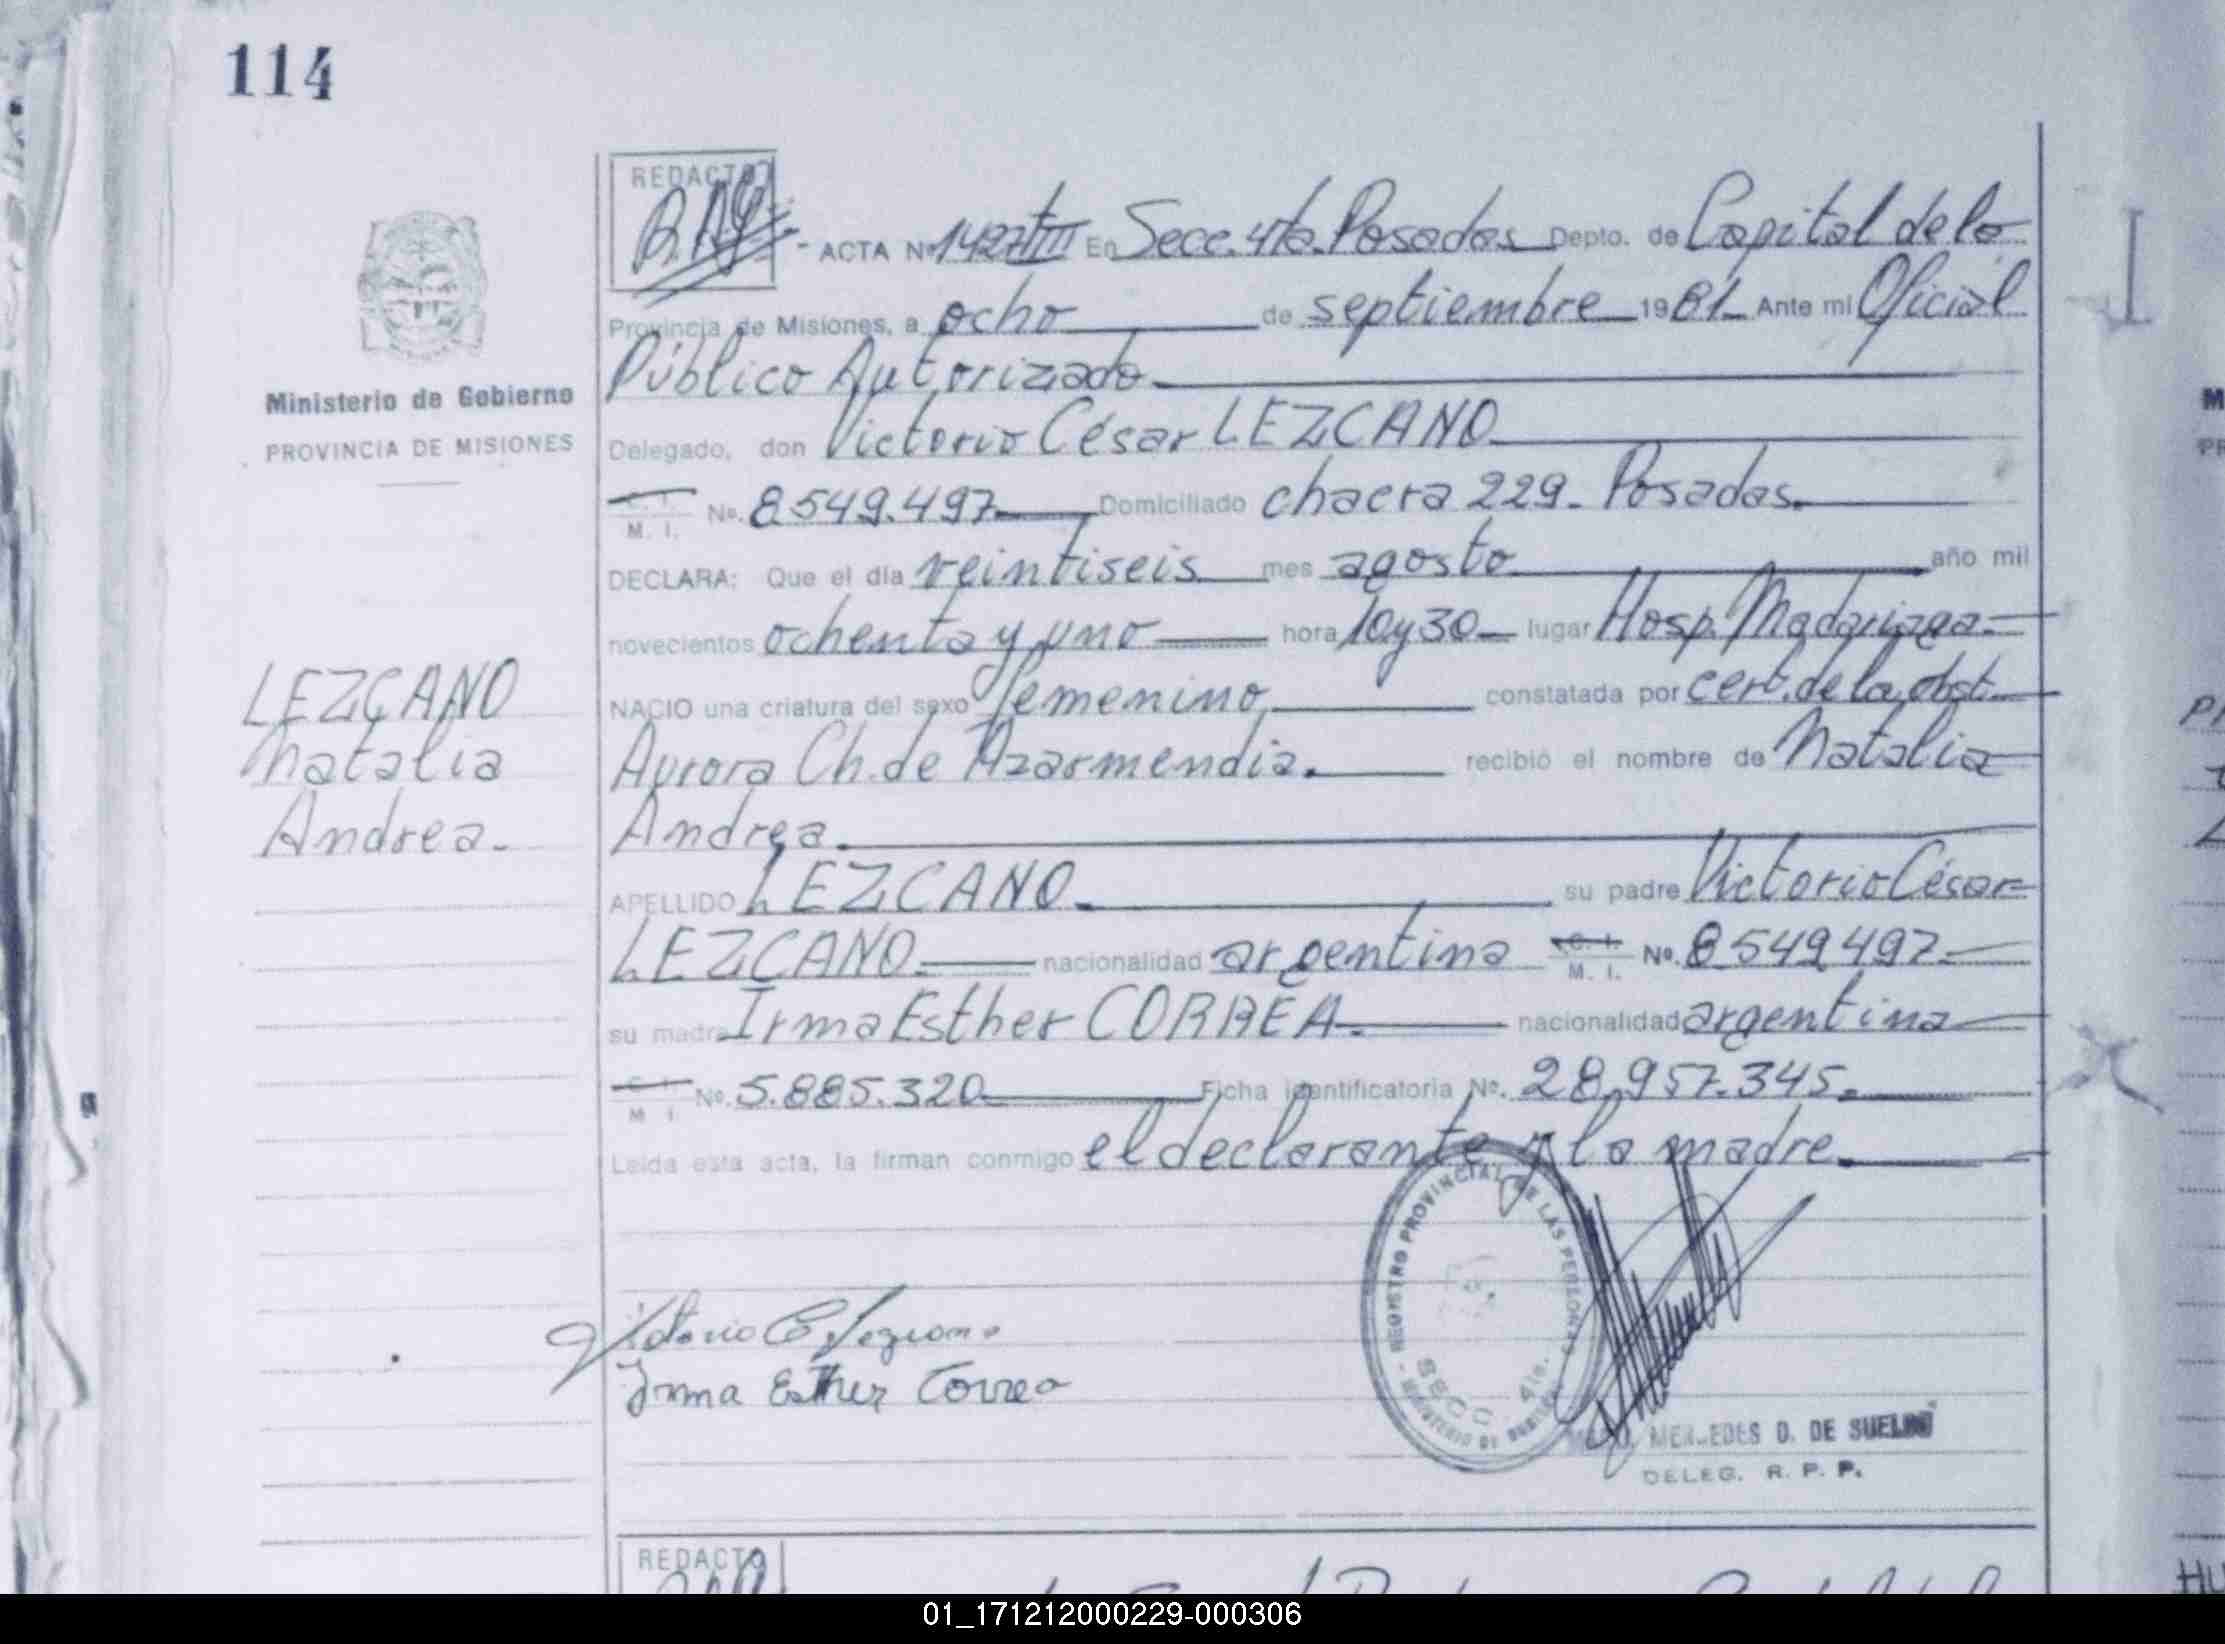 114
REDACTO
ACTA Nº 1427 tIII En Secc. 4ta. Posadas Depto. de Capital de la
Provincia de Misiones, a ocho de septiembre 1981 Ante mi Oficial
Público Autorizado
Ministerio de Gobierno
PROVINCIA DE MISIONES
Delegado, don Victorio César LEZCANO
C. I. M. I. Nº. 8.549.497 Domiciliado chacra 229. Posadas.
DECLARA: Que el día veintiseis mes agosto año mil
novecientos ochenta y uno hora 10 y 30 lugar Hosp. Madariaga.
LEZCANO
Natalia
Andrea.
NACIO una criatura del sexo femenino constatada por cert. de la obst.
Aurora Ch. de Azarmendia. recibió el nombre de Natalia
Andrea.
APELLIDO LEZCANO. su padre Victorio César
LEZCANO. nacionalidad argentina C. I. M. I. Nº. 8.549.497
su madre Irma Esther CORREA. nacionalidad argentina
C. I. M I. Nº. 5.885.320 Ficha identificatoria Nº. 28.957.345.
Leída esta acta, la firman conmigo el declarante y la madre.
REGISTRO PROVINCIAL DE LAS PERSONAS
SECC. 4ta.
MINISTERIO DE
Irma Esther Correa
MERCEDES D. DE
DELEG. R. P. P.
REDACTO
01_171212000229-000306